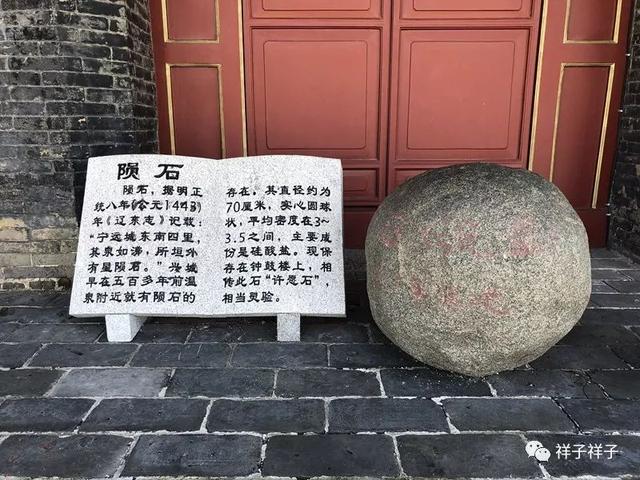 陨石
陨石，据明正
统八年（公元1443）
年《辽东志》记载：
“宁远城东南四里，
其泉如沸，所垣外
有星陨石。”兴城
早在五百多年前温
泉附近就有陨石的
存在。其直径约为
70厘米，实心圆球
状，平均密度在3~
3.5之间，主要成
份是硅酸盐。现保
存在钟鼓楼上，相
传此石“许愿石”，
相当灵验。
祥子祥子